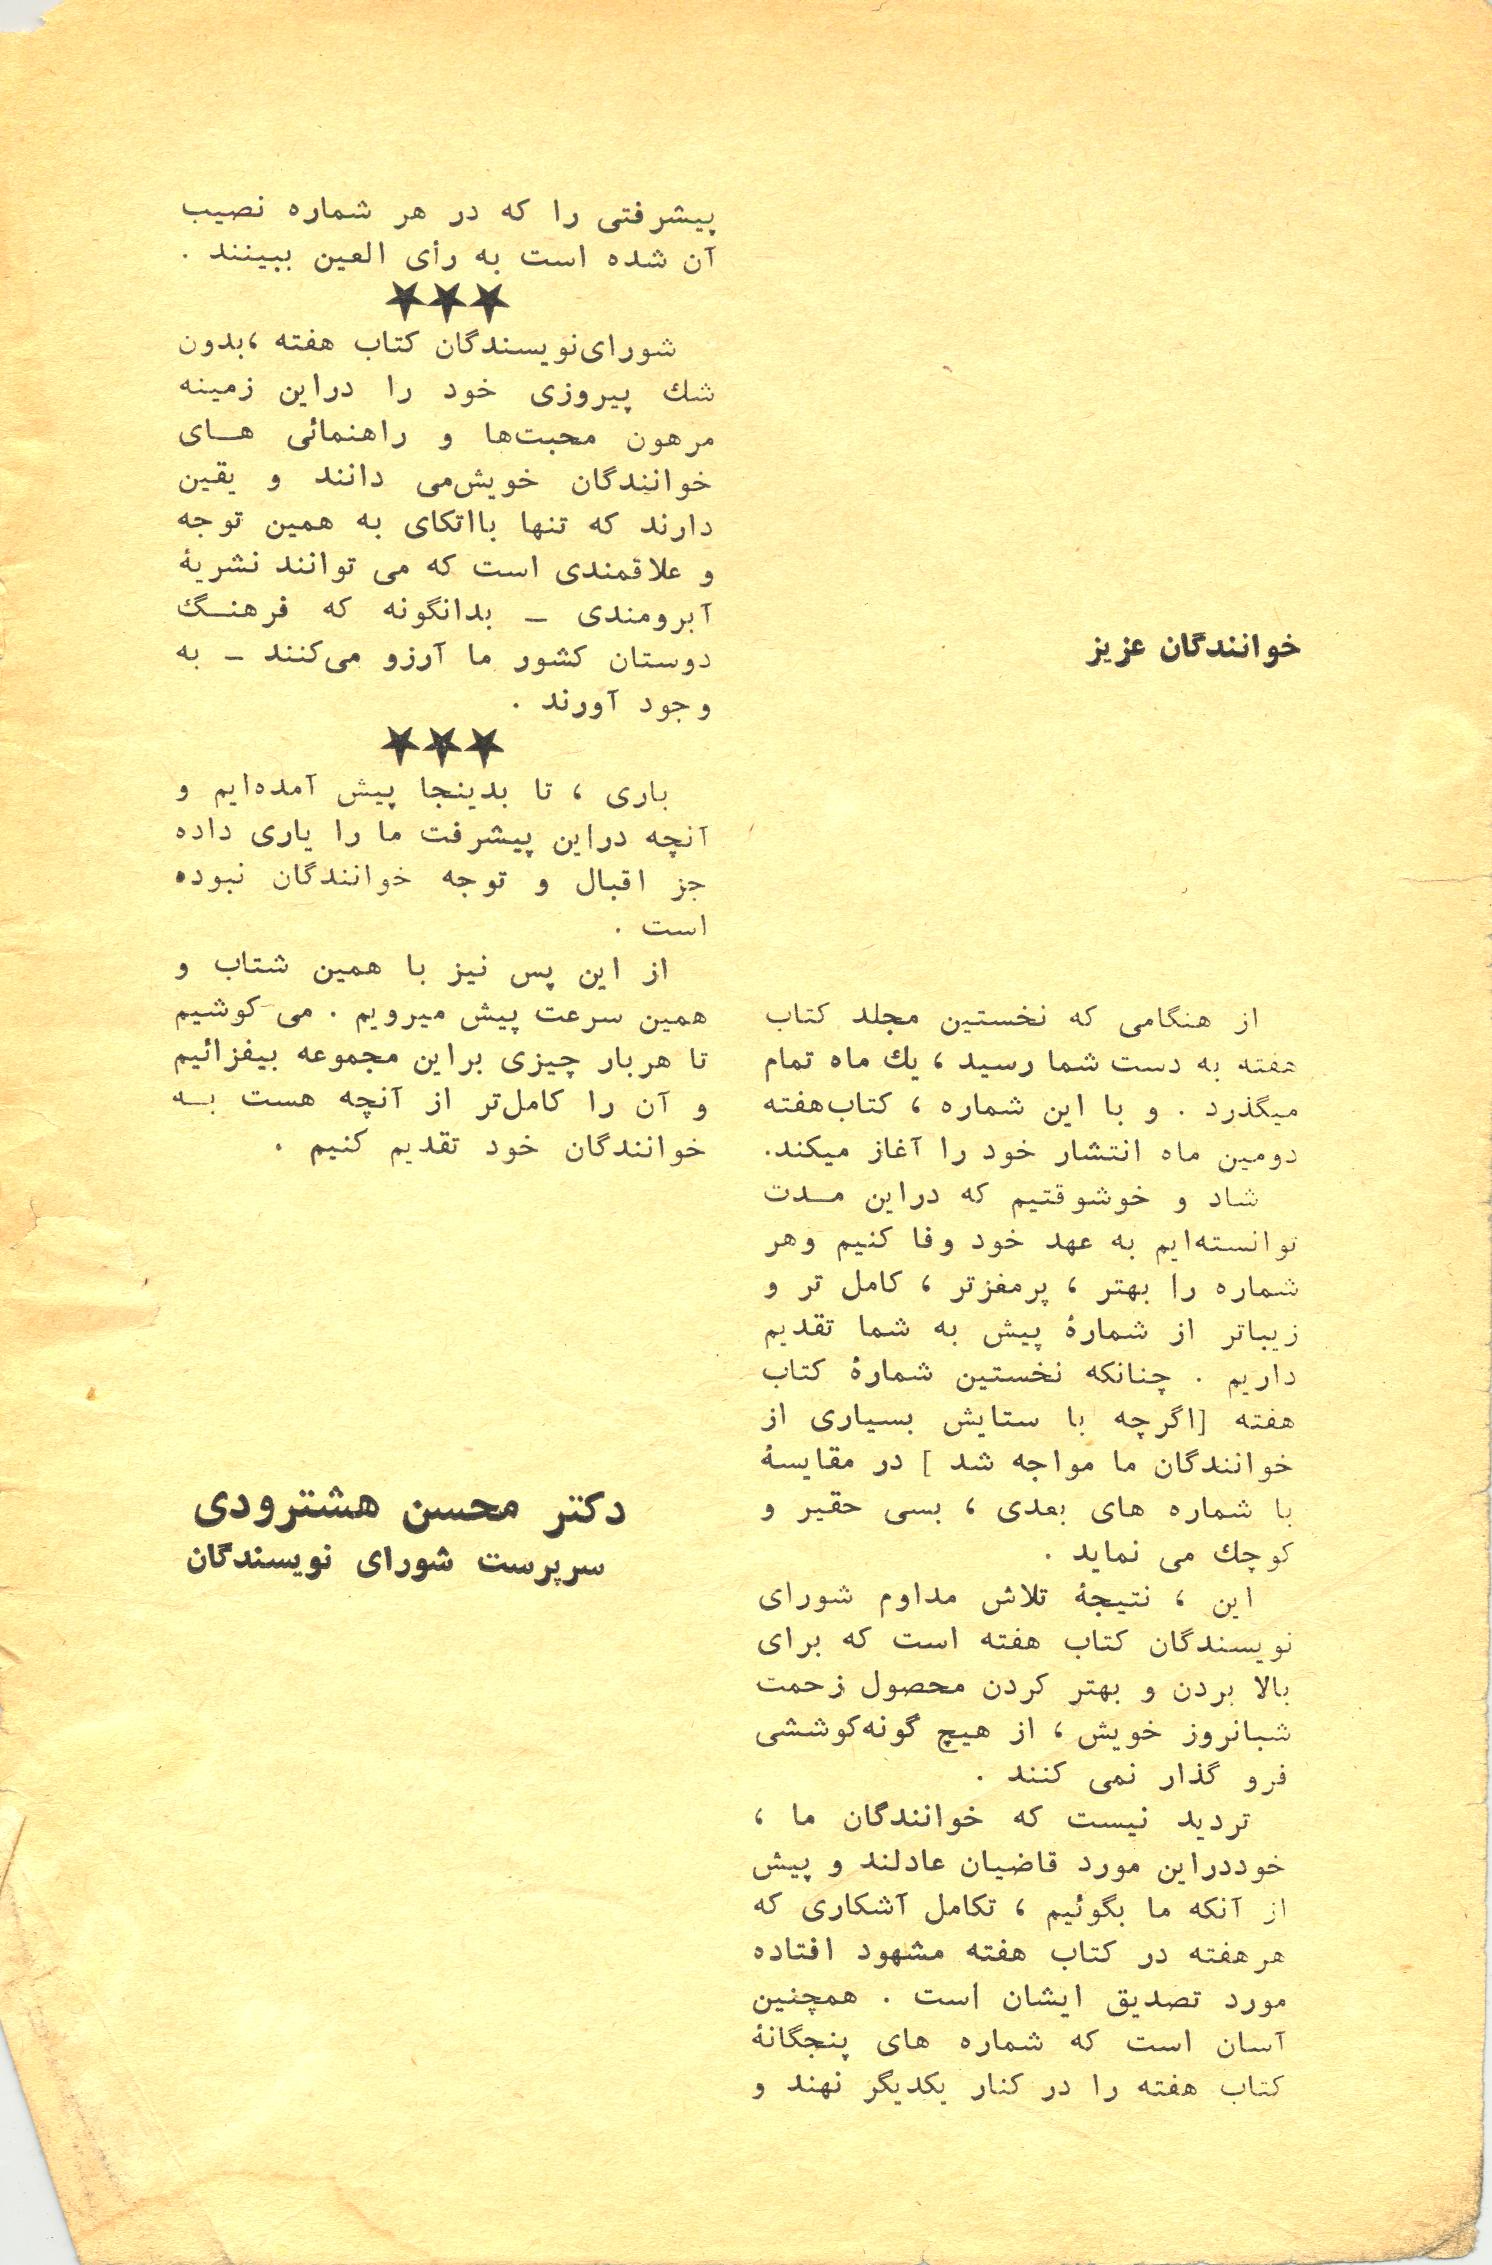 خوانندگان عزیز
از هنگامی که نخستین مجلد کتاب
هفته به دست شما رسید ، یك ماه تمام
میگذرد . و با این شماره ، کتاب‌هفته
دومین ماه انتشار خود را آغاز میکند.
شاد و خوشوقتیم که دراین مـدت
توانسته‌ایم به عهد خود وفا کنیم وهر
شماره را بهتر ، پرمغزتر ، کامل تر و
زیباتر از شمارهٔ پیش به شما تقدیم
داریم . چنانکه نخستین شمارهٔ کتاب
هفته [اگرچه با ستایش بسیاری از
خوانندگان ما مواجه شد ] در مقایسهٔ
با شماره های بعدی ، بسی حقیر و
کوچك می نماید .
این ، نتیجهٔ تلاش مداوم شورای
نویسندگان کتاب هفته است که برای
بالا بردن و بهتر کردن محصول زحمت
شبانروز خویش ، از هیچ گونه‌کوششی
فرو گذار نمی کنند .
تردید نیست که خوانندگان ما ،
خوددراین مورد قاضیان عادلند و پیش
از آنکه ما بگوئیم ، تکامل آشکاری که
هرهفته در کتاب هفته مشهود افتاده
مورد تصدیق ایشان است . همچنین
آسان است که شماره های پنجگانهٔ
کتاب هفته را در کنار یکدیگر نهند و
پیشرفتی را که در هر شماره نصیب
آن شده است به رأی العین ببینند .
★★★
شورای‌نویسندگان کتاب هفته ،بدون
شك پیروزی خود را دراین زمینه
مرهون محبت‌ها و راهنمائی هـای
خوانندگان خویش‌می دانند و یقین
دارند که تنها بااتکای به همین توجه
و علاقمندی است که می توانند نشریهٔ
آبرومندی ـ بدانگونه که فرهنـگ
دوستان کشور ما آرزو می‌کنند ـ به
وجود آورند .
★★★
باری ، تا بدینجا پیش آمده‌ایم و
آنچه دراین پیشرفت ما را یاری داده
جز اقبال و توجه خوانندگان نبوده
است .
از این پس نیز با همین شتاب و
همین سرعت پیش میرویم . می کوشیم
تا هربار چیزی براین مجموعه بیفزائیم
و آن را کامل‌تر از آنچه هست بـه
خوانندگان خود تقدیم کنیم .
دکتر محسن هشترودی
سرپرست شورای نویسندگان